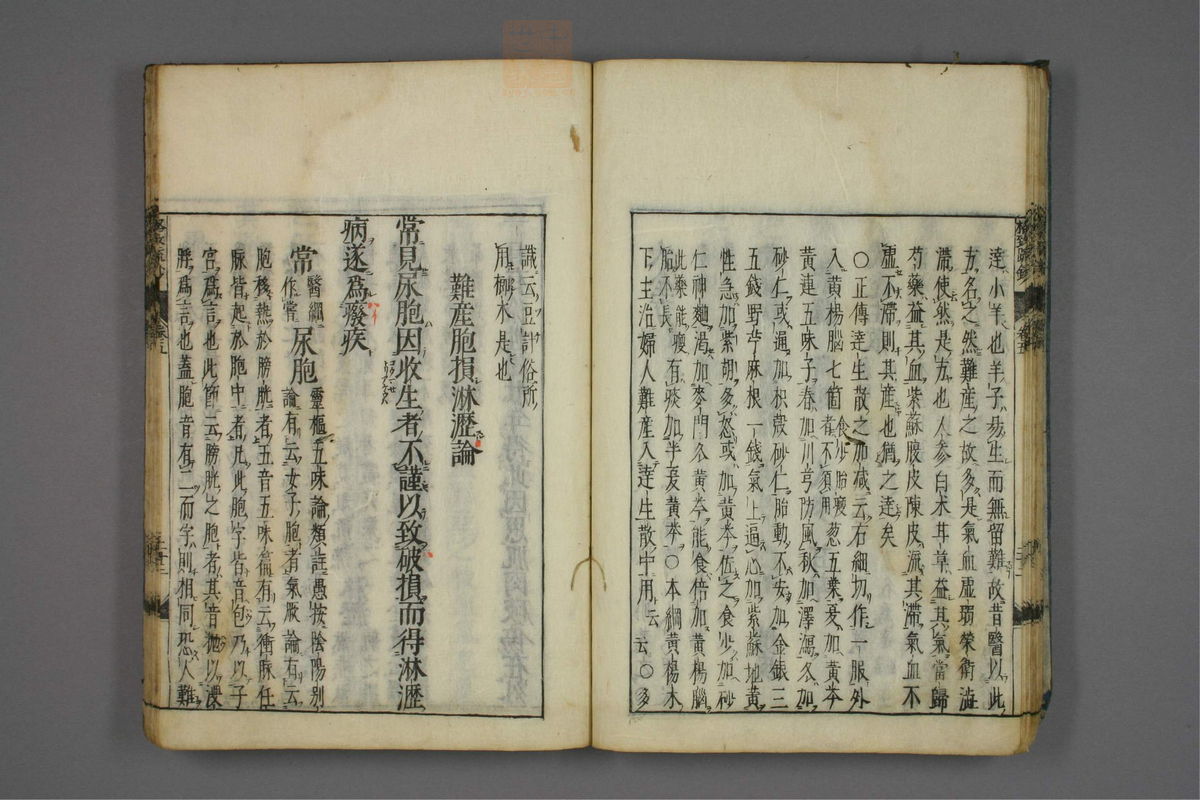 達小羊也羊子易生而無留難故昔醫以此
方名之然難産之故多是氣血虛弱榮衛澁
滯使然是方也人参白术甘草益其氣當歸
芍藥益其血紫蘇腹皮陳皮流其滯氣血不
虛不滯則其産也猶之達矣
○正傳達生散之加减云右細切作一服外
入黄楊腦七箇食少胎瘦者不須用葱五葉夏加黄芩
黄連五味子春加川芎防風秋加澤瀉冬加
砂仁或通加枳殻砂仁胎動不安加金銀三
五錢野苧麻根一錢氣上逼心加紫蘇地黄
性急加紫胡多怒或加黄芩佐之食少加砂
仁神麯渇加麥門冬黄芩能食倍加黄楊腦
此藥能瘦胎不長有痰加半夏黄芩○本綱黄楊木
下主治婦人難産入達生散中用云云○多
識云豆計俗所
用梛木是也
難産胞損淋瀝論
常見尿胞因收生者不謹以致破損而得淋瀝
病遂爲癈疾
常醫綱作嘗尿胞靈樞五味論類註愚按陰陽別
論有云女子胞者氣厥論有云
胞移熱於膀胱者五音五味篇有云衝脉任
脉皆起於胞中者凡此胞字皆音包乃以子
宮爲言也此節云膀胱之胞者其音抛以溲
脬爲言也蓋胞音有二而字則相同恐人難